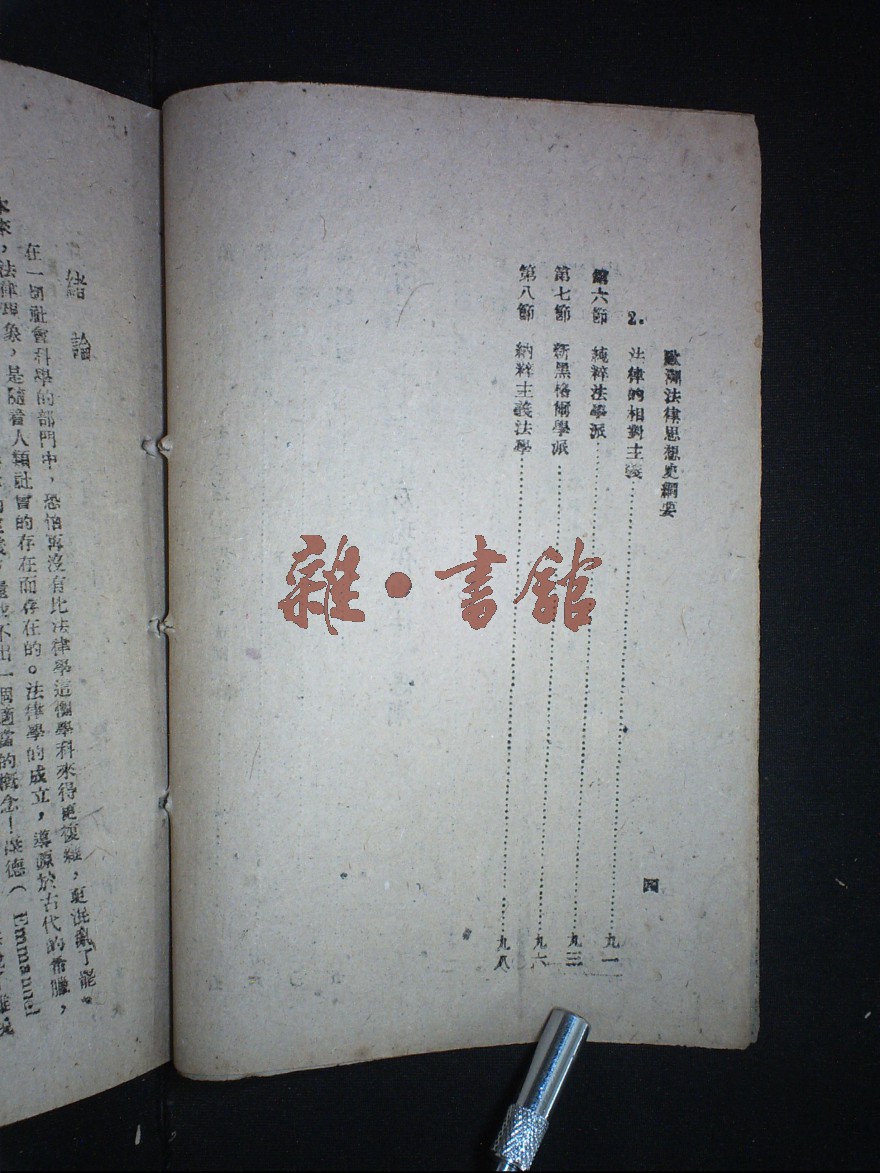 歐洲法律思想史綱要
四
2. 法律的相對主義……九一
第六節 純粹法學派……九三
第七節 新黑格爾學派……九六
第八節 納粹主義法學……九八
雜·書館
緒論
在一切社會科學的部門中，恐怕再沒有比法律學這個學科來得更複雜，更混亂了罷。
本來，法律現象，是隨着人類社會的存在而存在的。法律學的成立，導源於古代的希臘，
不出一個適當的概念！康德（Emmannel